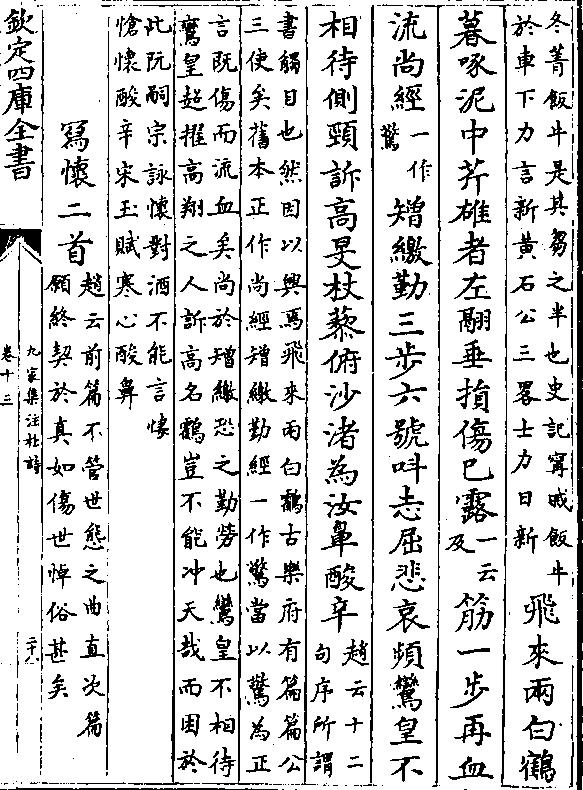 冬菁飯牛是其芻之半也史記甯戚飯牛
於車下力言新黄石公三畧士力日新
飛來兩白鶴
暮啄泥中芹雄者左翮垂損傷已露
一云
及
筋一步再血
流尚經
一作
驚
矰繳勤三步六號叫志屈悲哀頻鸞皇不
相待側頸訴高旻杖藜俯沙渚為汝鼻酸辛
趙云十二
句序所謂
書觸目也然因以興焉飛來兩白鶴古樂府有篇篇公
三使矣舊本正作尚經矰繳勤經一作驚當以驚為正
言既傷而流血矣尚於矰繳恐之勤勞也鸞皇不相待
鸞皇超擢高翔之人訴高名鶴豈不能冲天哉而困於
此阮嗣宗詠懷對酒不能言悽
愴懷酸辛宋玉賦寒心酸鼻
寫懷二首
趙云前篇不管世態之曲直次篇
願終契於真如傷世悼俗甚矣
欽定四庫全書
九家集注杜詩
卷十三
二十八